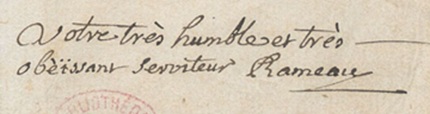 Votre très humble et très
obèissant serviteur Rameau
BLIOTHÈ